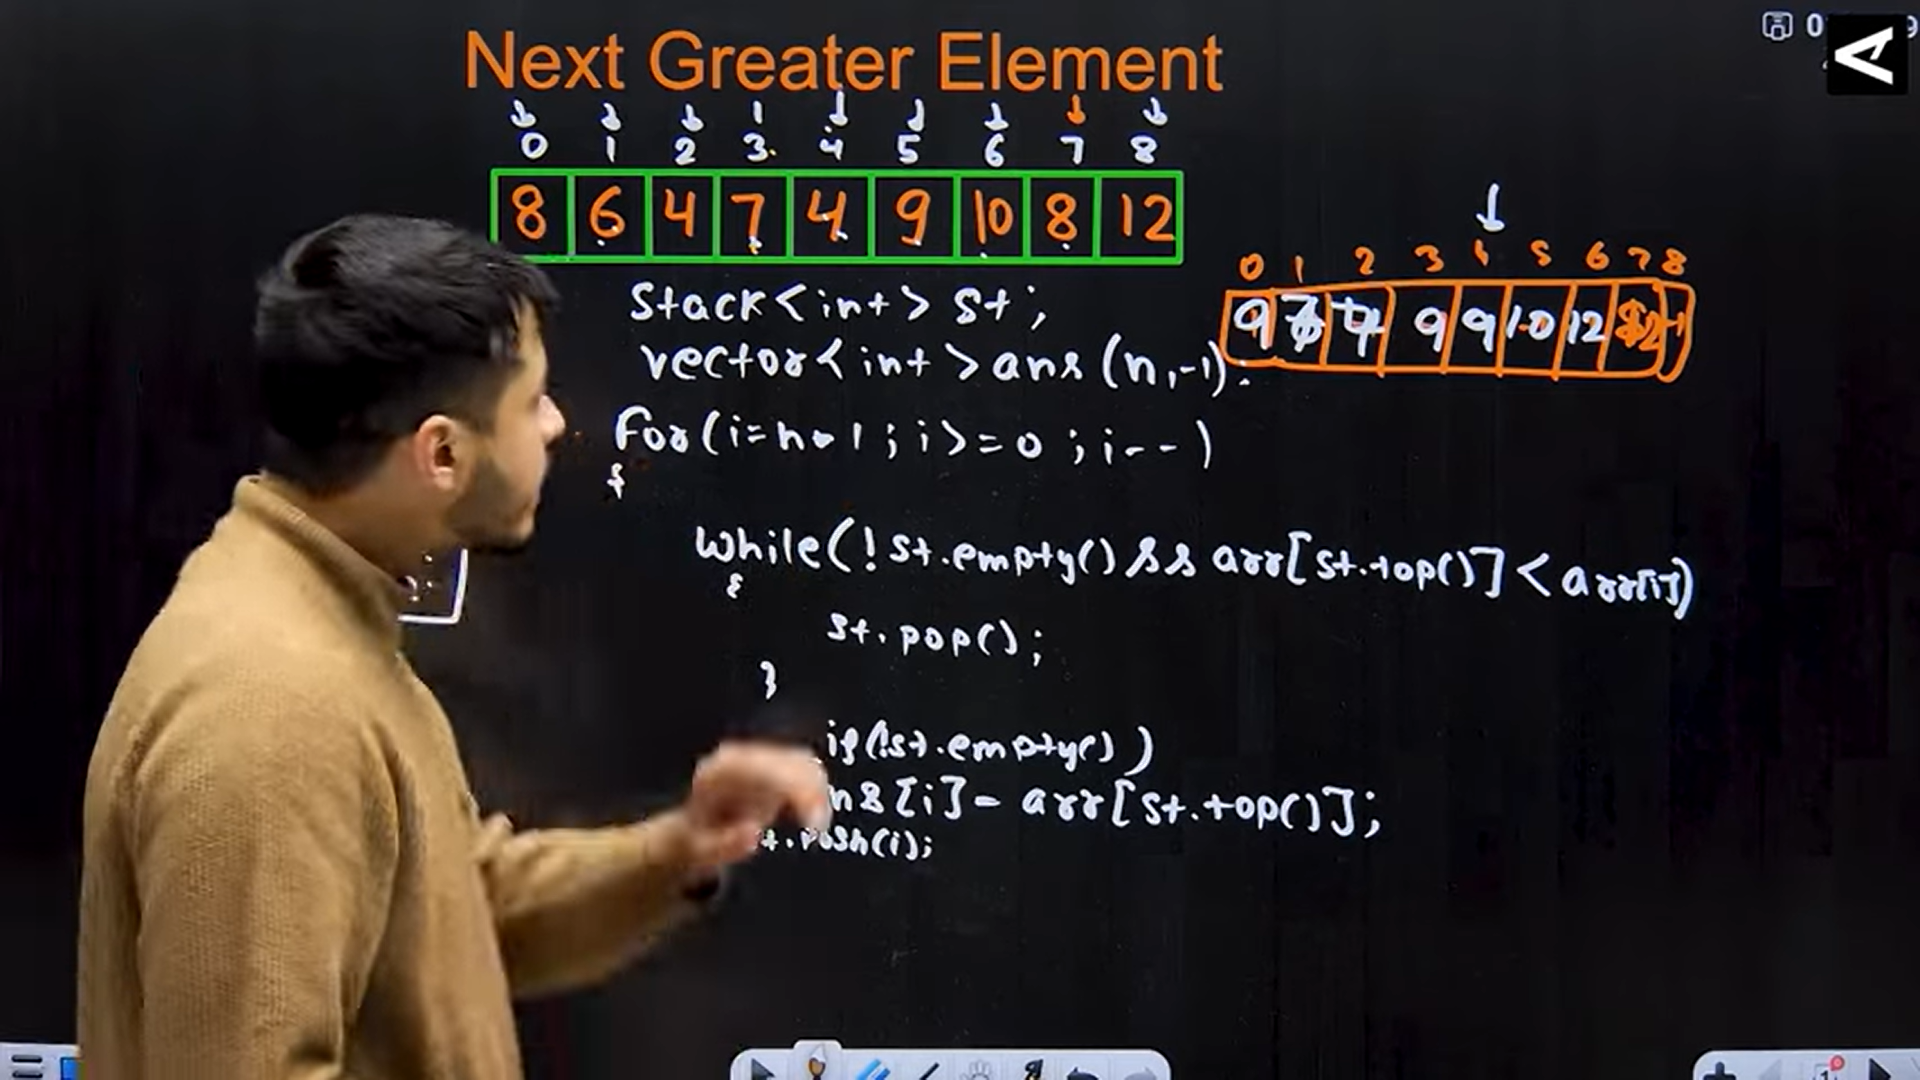 Next Greater Element
0 1 2 3 4 5 6 7 8
8 6 4 7 4 9 10 8 12
0 1 2 3 4 5 6 7 8
9 7 7 9 9 10 12 12 -1
Stack<int> st;
vector<int>ans(n,-1);
for(i=n-1;i>=0;i--)
{
while(!st.empty() && arr[st.top()]<arr[i])
{
st.pop();
}
if(!st.empty())
ns[i]=arr[st.top()];
t.push(i);